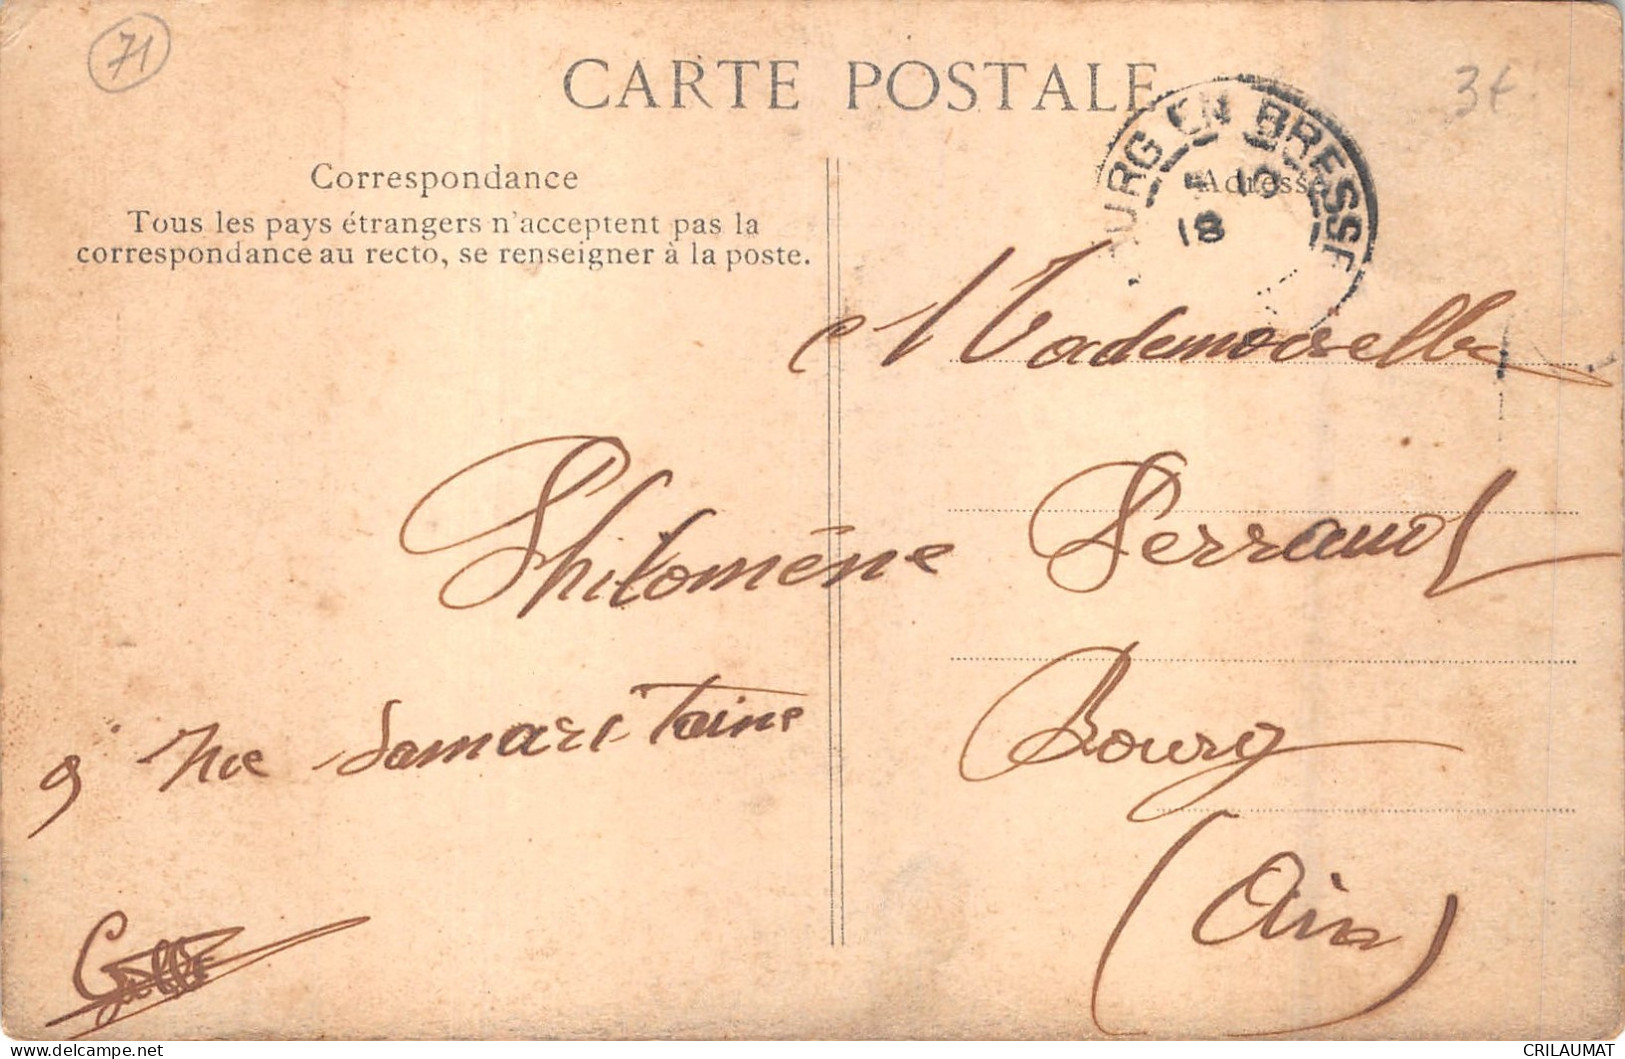 71
CARTE POSTALE
3€
Correspondance
Tous les pays étrangers n'acceptent pas la
correspondance au recto, se renseigner à la poste.
URG EN BRESSE
18
Adresse
Mademoiselle
Philomène Perraud
9 rue Samaritaine
Bourg
(Ain)
CRILAUMAT